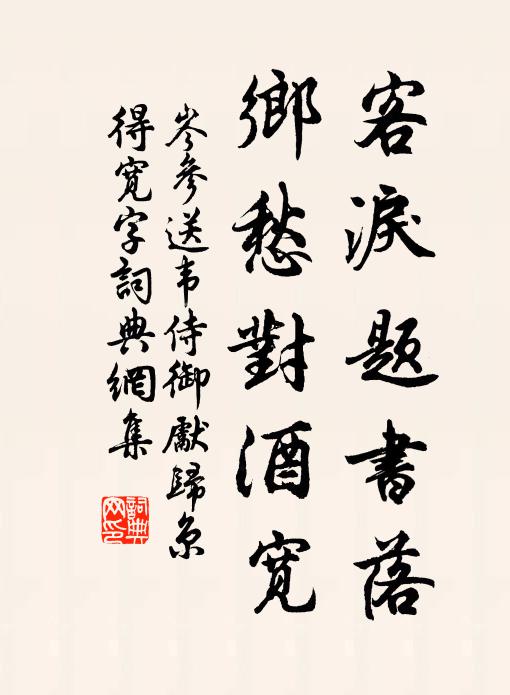 客淚题書落
鄉愁對酒寬
岑參送韦侍御獻歸京
得寬字詞典網集
詞典网印